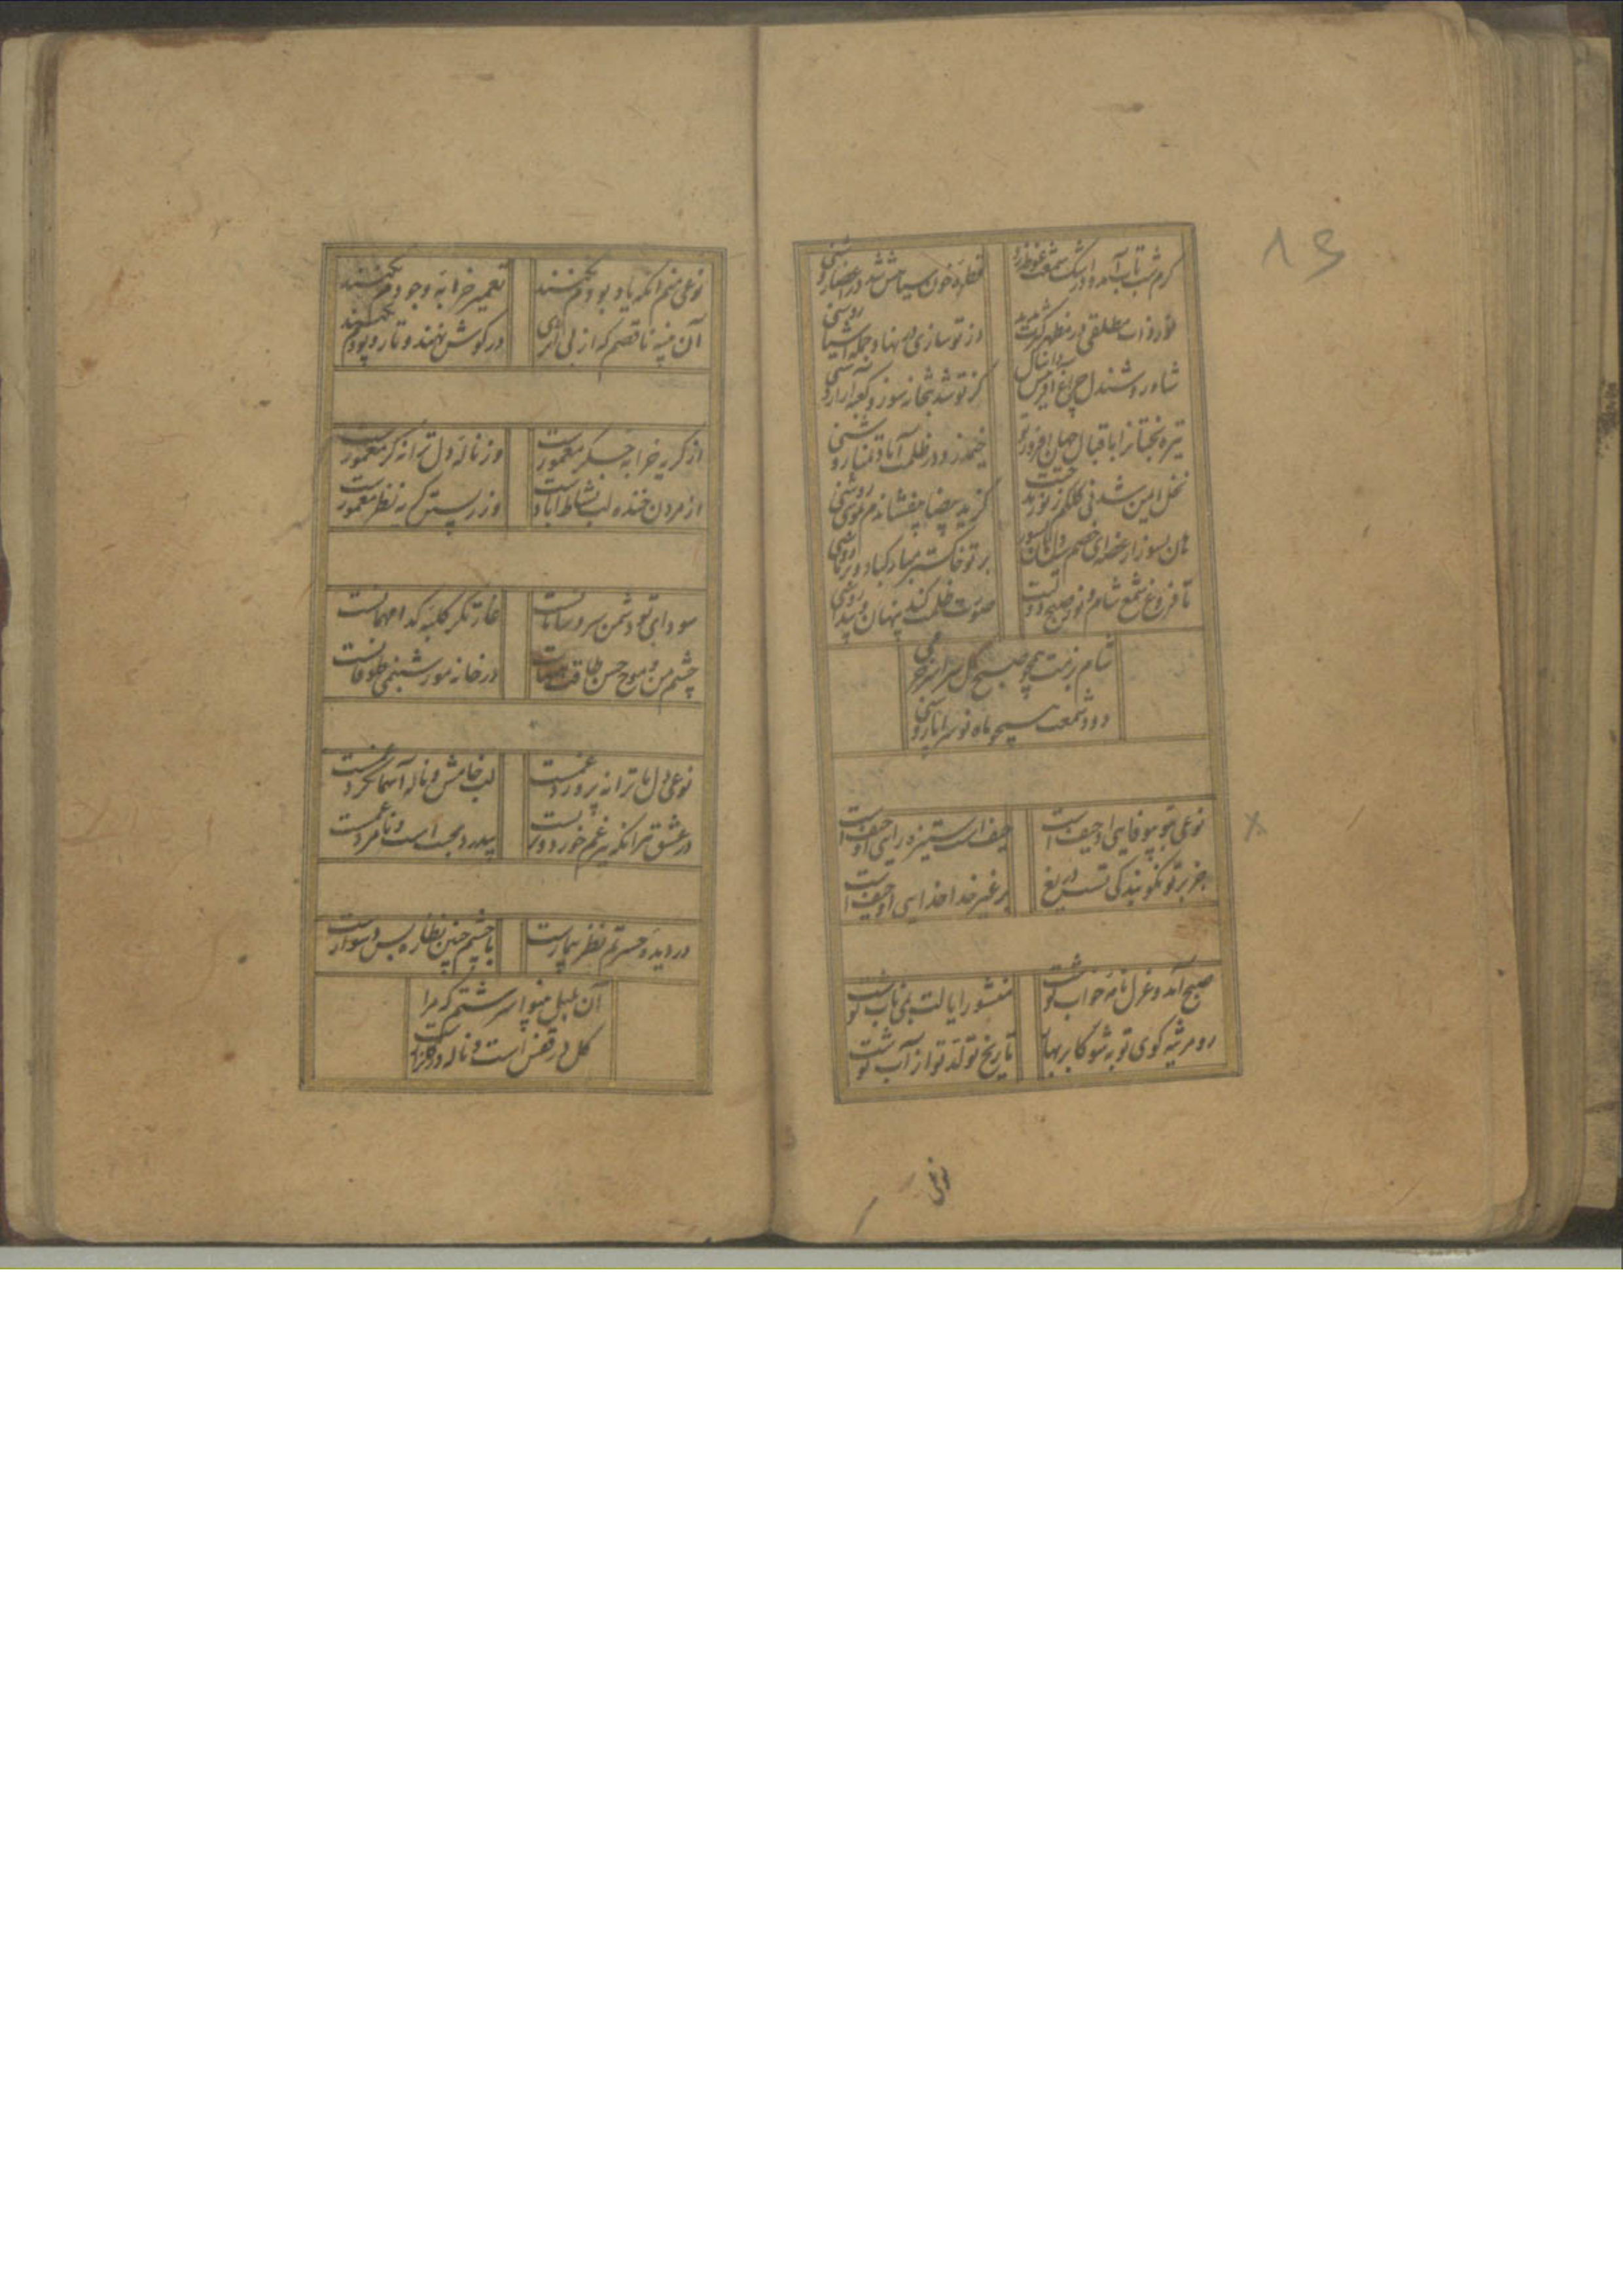 کرم شب تاب آمد و در اشک شمعت غوطه زد
قطره خون سیاهش شد در اعضا روشنی
نور ذات مطلقی در مظهر کثرت پدید
از تو سازی وام نهاد و جمله اشیا روشنی
شاد و روشندل چراغ
کز تو شد بتخانه سوز و کعبه آرا روشنی
تیره بختانرا باقبال جهان افروز تو
خیمه زد در ظلمت آباد تمنا روشنی
نخل ایمن شد نی کلکم ز نور
کز ید بیضا بیفشاندم موسی روشنی
هان بسوز از غصه ای خصم سیه دل
بر تو خاکستر مباد
تا فروغ شمع شام و نور صبح دولتت
صورت ظلمت کند پنهان و پیدا روشنی
شام بزمت همچو صبح گل سراسر خرمی
دود شمعت همچو ماه نو سراپا روشنی
نوعی بتو بیوفایی او حیف است
حیف است ستیزه رایی او حیف است
جز بر تو نکو بندگی تست دریغ
بر غیر خدا خدایی او حیف است
صبح آمد و عزل نامه خواب نوشت
منشور ایالت می ناب نوشت
رو مرثیه گوی توبه شو کابر بهار
تاریخ تولد تو از آب نوشت
نوعی
نوعی منم آنکه یاد بودم نکنند
تعمیر خرابه وجودم نکنند
آن پنبه ناقصم که از بی اثری
در گوش نهند و تار و پودم نکنند
از گریه خرابه جگر معمورست
وز ناله دل ترانه گر معمورست
از مردن خنده لب نشاط آبادست
وز زیستن گریه نظر معمورست
سودای تو دشمن سر و سامانست
غارتگر کلبه گدا مهمانست
چشم من و موج حسن طاقت هیهات
در خانه مور شبنمی طوفانست
نوعی دل ما ترانه پرورد غمست
لب خامش و ناله آسمانگرد غمست
در عشق تر آنکه غم خورد دور
بیدرد محبت است و نامرد غمست
در دیده حسرتم نظر بیمارست
با چشم چنین نظاره بس دشوارست
آن بلبل بینوا سرشتم که مرا
گل در قفس است و ناله در گلزارست